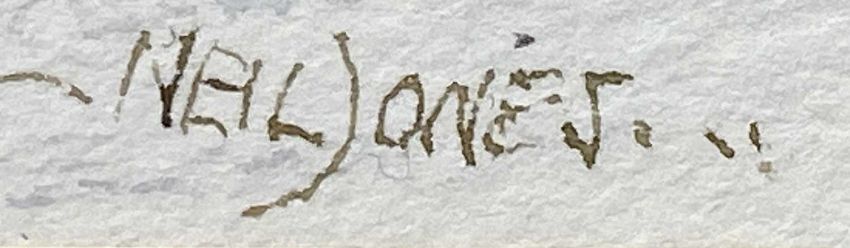 NEIL JONES.